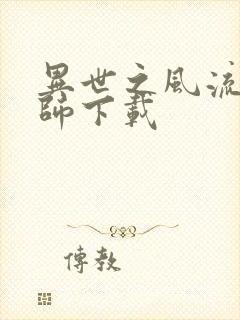 異世之風流
師下載
傳教